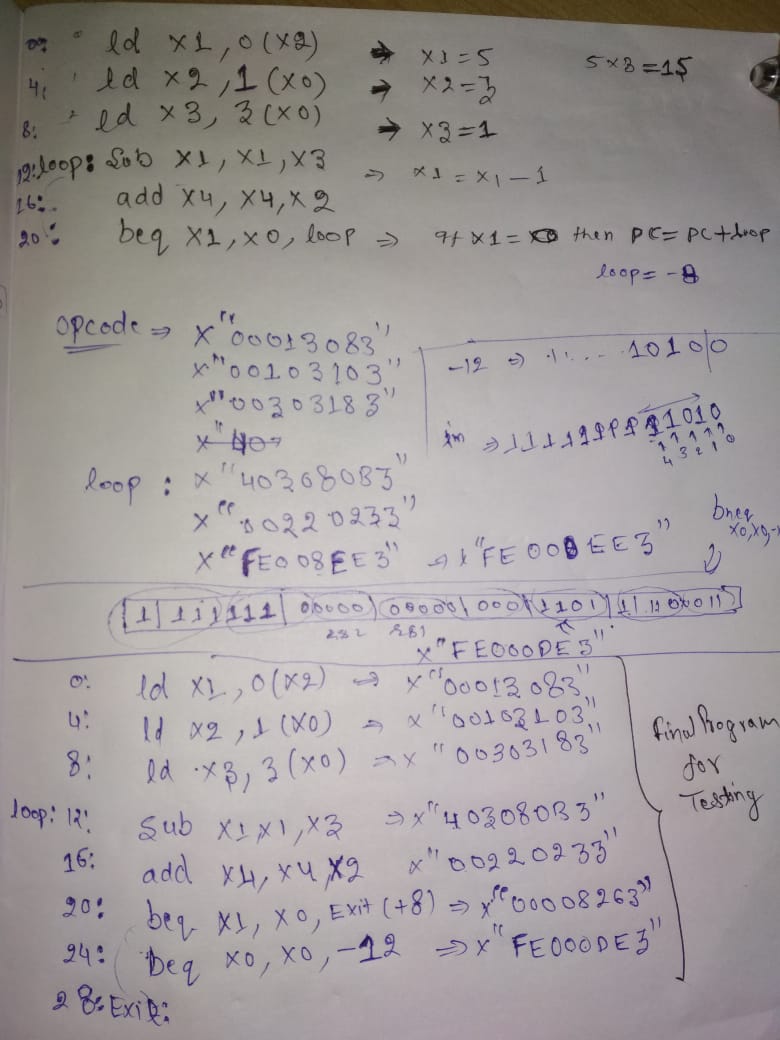 0: ld x1, 0(x2) → x1=5 5x3=15
4: ld x2, 1(x0) → x2=3
8: ld x3, 3(x0) → x3=1
12: loop: Sub x1, x1, x3 ⇒ x1 = x1 - 1
16: add x4, x4, x2
20: beq x1, x0, loop ⇒ If x1 = x0 then PC = PC + loop
loop = -8
opcode ⇒ x"00013083"
x"00103103"
x"00303183"
x"40
loop : x"403080B3"
x"00220233"
x"FE008EE3" → x"FE000EE3"
-12 ⇒ 1.... 10100
im ⇒ 111111111010
4 3 2 1 0
bneq
x0, x0,
1 | 111111 | 00000 | 00000 | 000 | 1101 | 1 | 1100011
rs2 rs1
x"FE000DE3"
0: ld x1, 0(x2) → x"00013083"
4: ld x2, 1(x0) → x"00103103"
8: ld x3, 3(x0) → x"00303183"
loop: 12: Sub x1 x1, x3 → x"403080B3"
16: add x4, x4, x2 x"00220233"
20: beq x1, x0, Exit (+8) ⇒ x"00008263"
24: beq x0, x0, -12 ⇒ x"FE000DE3"
28: Exit:
Final Program
for
Testing